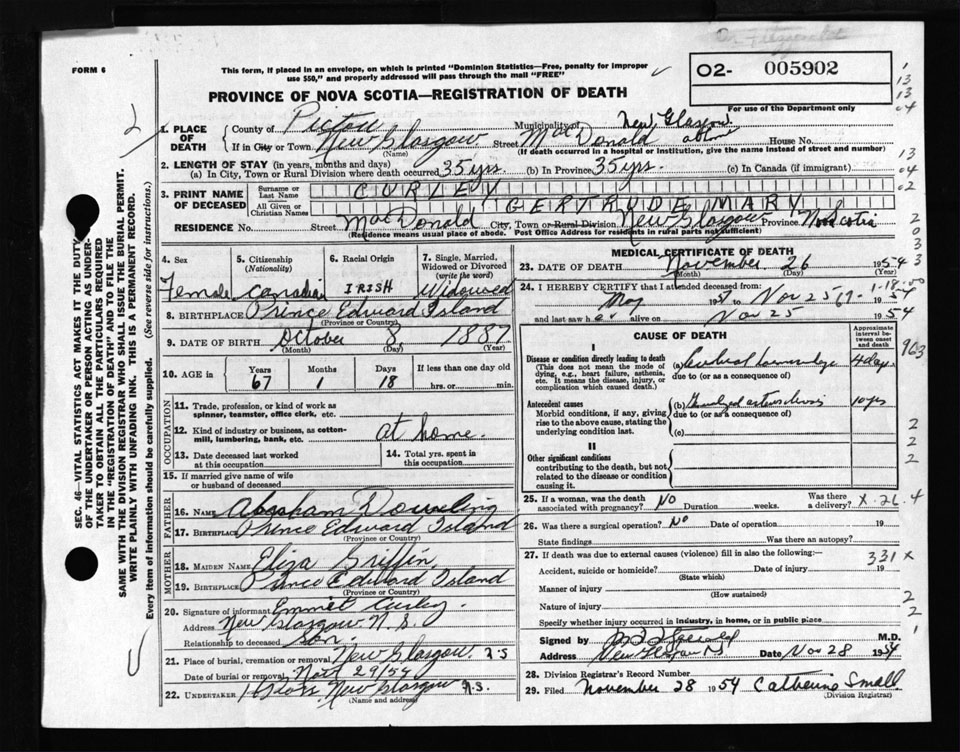 FORM 6
This form, if placed in an envelope, on which is printed "Dominion Statistics—Free, penalty for improper
use $50," and properly addressed will pass through the mail "FREE"
O2- 005902
PROVINCE OF NOVA SCOTIA—REGISTRATION OF DEATH
For use of the Department only
1. PLACE OF DEATH
County of Pictou Municipality of New Glasgow
If in City or Town New Glasgow (Name) Street MacDonald House No.
(If death occurred in a hospital or institution, give the name instead of street and number)
2. LENGTH OF STAY (in years, months and days)
(a) In City, Town or Rural Division where death occurred 35 yrs. (b) In Province 35 yrs. (c) In Canada (if immigrant)
3. PRINT NAME OF DECEASED
Surname or Last Name CURLEY
All Given or Christian Names GERTRUDE MARY
RESIDENCE No. Street MacDonald City, Town or Rural Division New Glasgow Province
(Residence means usual place of abode. Post Office Address for residents in rural parts not sufficient)
4. Sex Female
5. Citizenship (Nationality) Canadian
6. Racial Origin IRISH
7. Single, Married, Widowed or Divorced (write the word) Widowed
8. BIRTHPLACE Prince Edward Island
(Province or Country)
9. DATE OF BIRTH October 8, 1887
(Month) (Day) (Year)
10. AGE in Years 67 Months 1 Days 18 If less than one day old hrs. or min.
OCCUPATION
11. Trade, profession, or kind of work as spinner, teamster, office clerk, etc.
12. Kind of industry or business, as cotton-mill, lumbering, bank, etc. at home.
13. Date deceased last worked at this occupation
14. Total yrs. spent in this occupation
15. If married give name of wife or husband of deceased
FATHER
16. NAME Abraham Dowling
17. BIRTHPLACE Prince Edward Island
(Province or Country)
MOTHER
18. MAIDEN NAME Eliza Griffin,
19. BIRTHPLACE Prince Edward Island
(Province or Country)
20. Signature of informant Emmet Curley.
Address New Glasgow N. S.
Relationship to deceased Son.
21. Place of burial, cremation or removal New Glasgow. N.S
Date of burial or removal Nov 29/54
22. UNDERTAKER New Glasgow N.S.
(Name and address)
MEDICAL CERTIFICATE OF DEATH
23. DATE OF DEATH November 26 1954
(Month) (Day) (Year)
24. I HEREBY CERTIFY that I attended deceased from:
May Nov 25 1954
and last saw her alive on Nov 25 1954
CAUSE OF DEATH
Approximate interval between onset and death
I
Disease or condition directly leading to death
(This does not mean the mode of dying, e.g., heart failure, asthenia, etc. It means the disease, injury, or complication which caused death.)
(a) Cerebral hemorrhage 4 days
due to (or as a consequence of)
Antecedent causes
Morbid conditions, if any, giving rise to the above cause, stating the underlying condition last.
(b) Generalized arteriosclerosis 10 yrs
due to (or as a consequence of)
(c)
II
Other significant conditions
contributing to the death, but not related to the disease or condition causing it.
25. If a woman, was the death associated with pregnancy? No Duration weeks. Was there a delivery?
26. Was there a surgical operation? No Date of operation 19
State findings Was there an autopsy?
27. If death was due to external causes (violence) fill in also the following:—
331 X
Accident, suicide or homicide? (State which) Date of injury 19
Manner of injury
(How sustained)
Nature of injury
Specify whether injury occurred in industry, in home, or in public place
Signed by M.D.
Address New Glasgow NS Date Nov 28 1954
28. Division Registrar's Record Number
29. Filed November 28 1954 Catherine Small
(Division Registrar)
SEC. 46—VITAL STATISTICS ACT MAKES IT THE DUTY
OF THE UNDERTAKER OR PERSON ACTING AS UNDER-
TAKER TO OBTAIN ALL THE PARTICULARS REQUIRED
IN THE "REGISTRATION OF DEATH" AND TO FILE THE
SAME WITH THE DIVISION REGISTRAR WHO SHALL ISSUE THE BURIAL PERMIT.
WRITE PLAINLY WITH UNFADING INK. THIS IS A PERMANENT RECORD.
Every item of information should be carefully supplied. (See reverse side for instructions.)